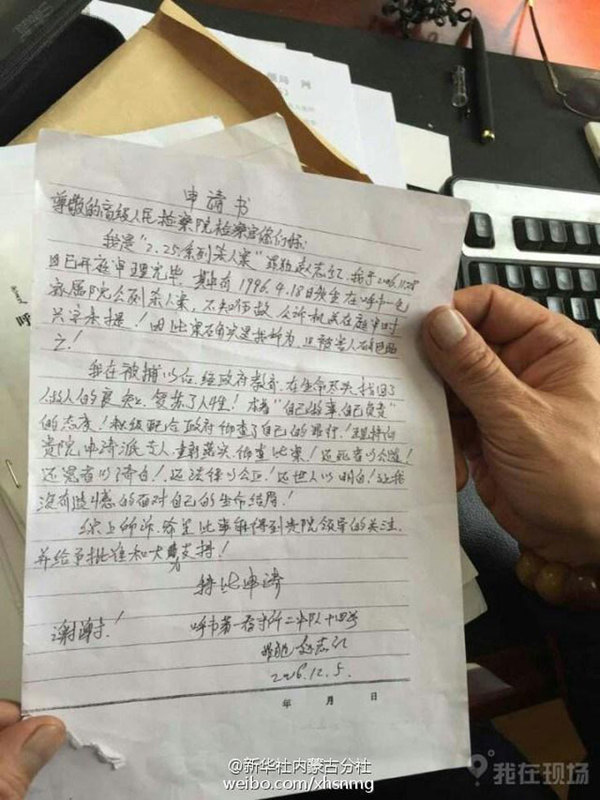 申请书
尊敬的高级人民检察院检察官你们好:
我是“2.25系列杀人案”罪犯赵志红,我于2006.11.28
日已开庭审理完毕,其中有1996.4.18日发生在呼市一毛
家属院公厕杀人案,不知何故,公诉机关在庭审时
只字未提!因此案确实是我所为,且被害人确已死
亡!
我在被捕以后,经政府教育,在生命尽头找回了
做人的良知,复苏了人性!本着“自己做事,自己负责”
的态度!积极配合政府彻查了自己的罪行!现特向
贵院申请派专人重新落实、彻查此案!还死者以公道!
还冤者以清白!还法律以公正!还世人以明白!让我
没有遗憾的面对自己的生命结局!
综上所诉,希望此事能得到贵院领导的关注,
并给予批准和大力支持!
特此申请
谢谢!
呼市第一看守所二中队十四号
罪犯赵志红
2006.12.5.
年 月 日
呼
@新华社内蒙古分社
weibo.com/xhsnmg
我在现场